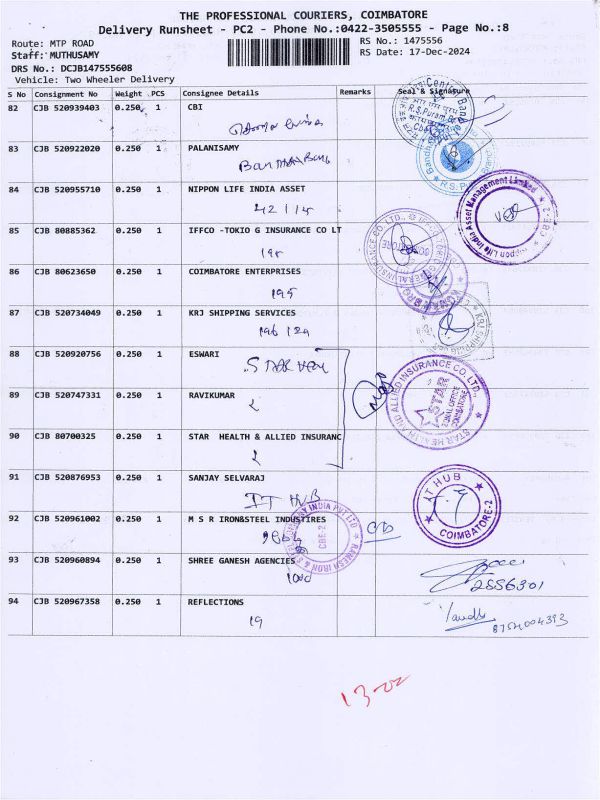 THE PROFESSIONAL COURIERS, COIMBATORE
Delivery Runsheet - PC2 - Phone No.:0422-3505555 - Page No.:8
Route: MTP ROAD
RS No.: 1475556
Staff: MUTHUSAMY
RS Date: 17-Dec-2024
DRS No.: DCJB147555608
Vehicle: Two Wheeler Delivery
S No Consignment No Weight PCS Consignee Details Remarks Seal & Signature
82 CJB 520939403 0.250 1 CBI
83 CJB 520922020 0.250 1 PALANISAMY
84 CJB 520955710 0.250 1 NIPPON LIFE INDIA ASSET
Nippon Life India Asset Management Limited
85 CJB 80885362 0.250 1 IFFCO -TOKIO G INSURANCE CO LT
86 CJB 80623650 0.250 1 COIMBATORE ENTERPRISES
195
87 CJB 520734049 0.250 1 KRJ SHIPPING SERVICES
196 129
88 CJB 520920756 0.250 1 ESWARI
89 CJB 520747331 0.250 1 RAVIKUMAR
STAR HEALTH AND ALLIED INSURANCE CO.LTD.
ZONAL OFFICE
COIMBATORE
90 CJB 80700325 0.250 1 STAR HEALTH & ALLIED INSURANC
91 CJB 520876953 0.250 1 SANJAY SELVARAJ
IT HUB
IT HUB
COIMBATORE-2
92 CJB 520961002 0.250 1 M S R IRON&STEEL INDUSTIRES
CBE-2
93 CJB 520960894 0.250 1 SHREE GANESH AGENCIES
2556301
94 CJB 520967358 0.250 1 REFLECTIONS
19